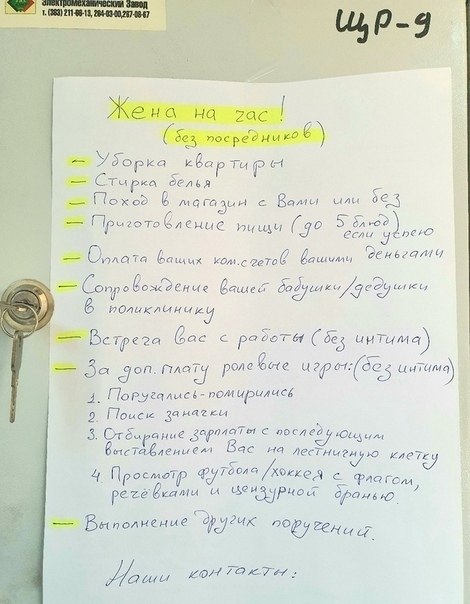 Электромеханический Завод
т. (383) 211-66-13, 264-03-00, 287-08-67
ЩР-9
Жена на час!
(без посредников)
– Уборка квартиры
– Стирка белья
– Поход в магазин с Вами или без
– Приготовление пищи (до 5 блюд)
если успею
– Оплата ваших ком.счетов вашими деньгами
– Сопровождение вашей бабушки/дедушки
в поликлинику
– Встреча вас с работы (без интима)
– За доп. плату ролевые игры: (без интима)
1. Поругались-помирились
2. Поиск заначки
3. Отбирание зарплаты с последующим
выставлением Вас на лестничную клетку
4. Просмотр футбола/хоккея с флагом,
речёвками и цензурной бранью.
– Выполнение других поручений.
Наши контакты: